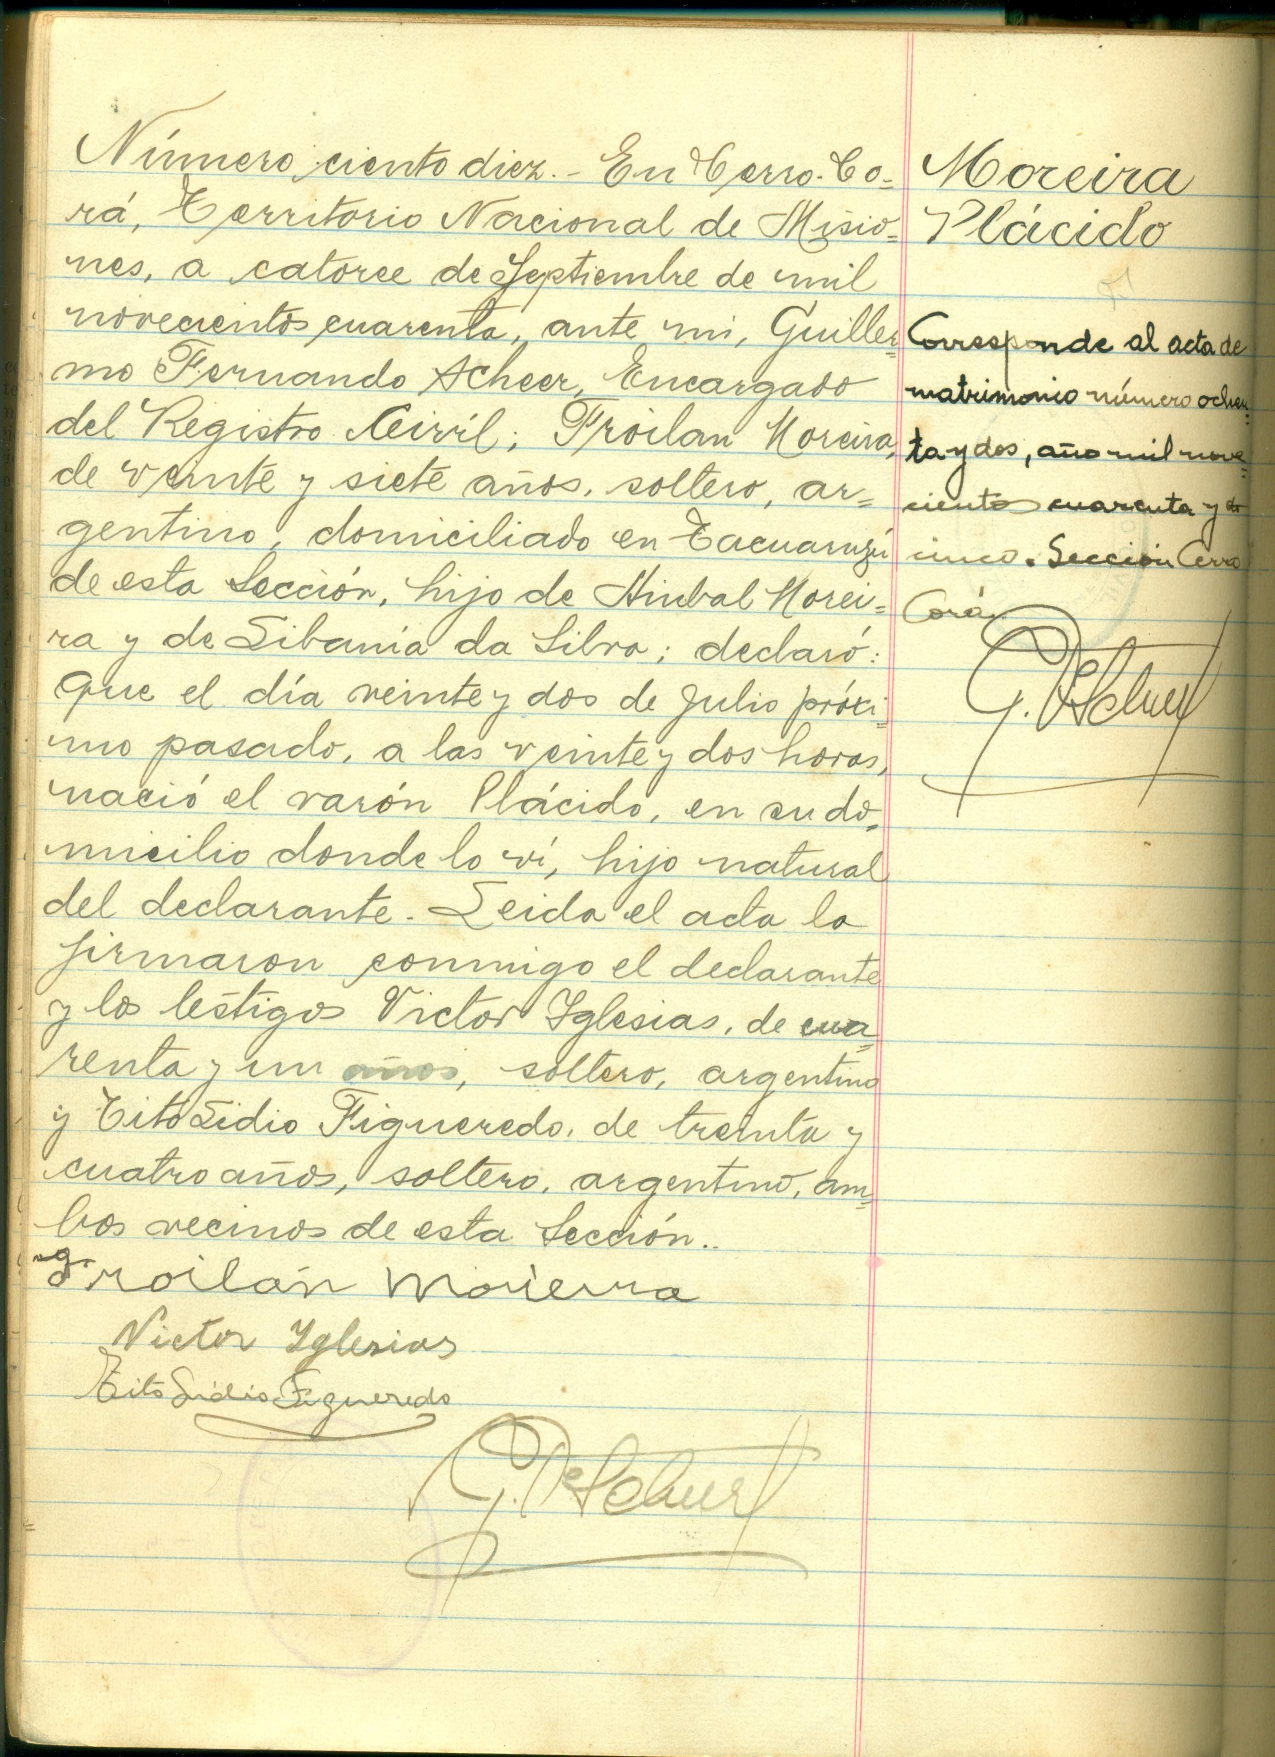 Número ciento diez.- En Cerro-Co=
rá, Territorio Nacional de Misio=
nes, a catorce de Septiembre de mil
novecientos cuarenta, ante mi, Guiller=
mo Fernando Scheer, Encargado
del Registro Civil; Froilan Moreira,
de veinte y siete años, soltero, ar=
gentino, domiciliado en Tacuaruzú
de esta Sección, hijo de Hinbal Morei=
ra y de Libania da Silva; declaró:
Que el día veinte y dos de Julio próxi=
mo pasado, a las veinte y dos horas,
nació el varón Plácido, en su do=
micilio donde lo ví, hijo natural
del declarante. Leida el acta la
firmaron conmigo el declarante
y los testigos Victor Iglesias, de cua=
renta y un años, soltero, argentino
y Tito Lidio Figueredo, de treinta y
cuatro años, soltero, argentino, am=
bos vecinos de esta Sección..
Froilán Morierra
Victor Iglesias
Tito Lidio Figueredo
G. F. Scheer
Moreira
Plácido
Corresponde al acta de
matrimonio número ochen=
ta y dos, año mil nove=
cientos cuarenta y
cinco. Sección Cerro
Corá
G. F. Scheer